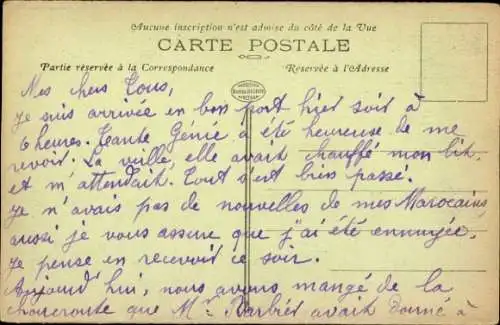 Aucune inscription n'est admise du côté de la Vue
CARTE POSTALE
Partie réservée à la Correspondance
Réservée à l'Adresse
Mes chers Tous,
Je suis arrivée en bon port hier soir à
6 heures. Tante Génie a été heureuse de me
revoir. La veille, elle avait chauffé mon lit,
et m'attendait. Tout s'est bien passé.
Je n'avais pas de nouvelles de mes Marocains
aussi je vous assure que j'ai été ennuyée.
Je pense en recevoir ce soir.
Aujourd'hui, nous avons mangé de la
choucroute que Mr Barbier avait donné à